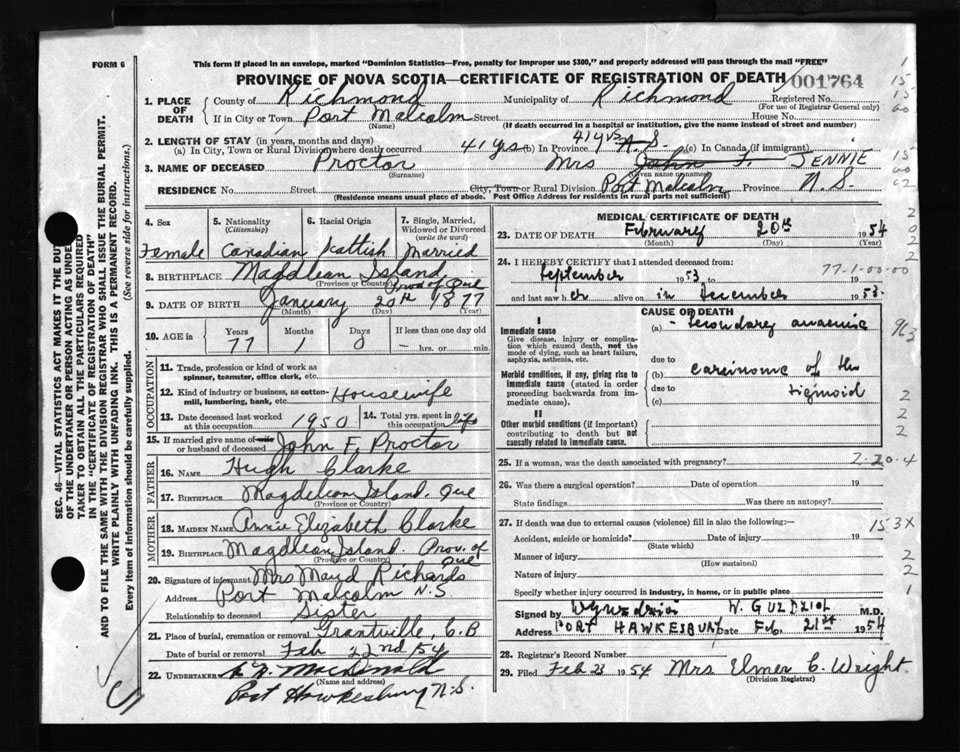 FORM 6
This form if placed in an envelope, marked "Dominion Statistics—Free, penalty for improper use $300," and properly addressed will pass through the mail "FREE"
PROVINCE OF NOVA SCOTIA—CERTIFICATE OF REGISTRATION OF DEATH 001764
1. PLACE OF DEATH County of Richmond Municipality of Richmond Registered No.
(For use of Registrar General only)
If in City or Town Port Malcolm Street House No.
(Name) (If death occurred in a hospital or institution, give the name instead of street and number)
2. LENGTH OF STAY (in years, months and days)
(a) In City, Town or Rural Division where death occurred 41 yrs (b) In Province 41 yrs N.S. (c) In Canada (if immigrant)
3. NAME OF DECEASED Proctor Mrs John F. JENNIE
(Surname) (Given name or names)
RESIDENCE No. Street City, Town or Rural Division Port Malcolm Province N.S.
(Residence means usual place of abode. Post Office Address for residents in rural parts not sufficient)
4. Sex Female
5. Nationality (Citizenship) Canadian
6. Racial Origin Scottish
7. Single, Married, Widowed or Divorced (write the word) Married
8. BIRTHPLACE Magdlean Island Prov of Que
(Province or Country)
9. DATE OF BIRTH January 20th 1877
(Month) (Day) (Year)
10. AGE in Years 77 Months 1 Days 0 If less than one day old — hrs. or min.
OCCUPATION
11. Trade, profession or kind of work as spinner, teamster, office clerk, etc.
12. Kind of industry or business, as cotton-mill, lumbering, bank, etc. Housewife
13. Date deceased last worked at this occupation 1950
14. Total yrs. spent in this occupation life
15. If married give name of wife or husband of deceased John F. Proctor
FATHER
16. NAME Hugh Clarke
17. BIRTHPLACE Magdelean Island. Que
(Province or Country)
MOTHER
18. MAIDEN NAME Annie Elizabeth Clarke
19. BIRTHPLACE Magdlean Island. Prov. of Que
(Province or Country)
20. Signature of informant Mrs Mayd Richards
Address Port Malcolm N.S
Relationship to deceased Sister
21. Place of burial, cremation or removal Grantville, C.B
Date of burial or removal Feb 22nd 54
22. UNDERTAKER MacDonald
(Name and address)
Port Hawkesbury N.S.
MEDICAL CERTIFICATE OF DEATH
23. DATE OF DEATH February 20th 1954
(Month) (Day) (Year)
24. I HEREBY CERTIFY that I attended deceased from:
September 1953 77-1-00-00
and last saw her alive on in December 1953.
CAUSE OF DEATH
I
Immediate cause
Give disease, injury or complication which caused death, not the mode of dying, such as heart failure, asphyxia, asthenia, etc.
(a) - Secondary anaemia
due to
Morbid conditions, if any, giving rise to immediate cause (stated in order proceeding backwards from immediate cause).
(b) carcinoma of the
due to sigmoid
(c)
II
Other morbid conditions (if important) contributing to death but not causally related to immediate cause.
25. If a woman, was the death associated with pregnancy? 7-20-4
26. Was there a surgical operation? Date of operation 19
State findings Was there an autopsy?
27. If death was due to external causes (violence) fill in also the following:— 153X
Accident, suicide or homicide? Date of injury 19
(State which)
Manner of injury
(How sustained)
Nature of injury
Specify whether injury occurred in industry, in home, or in public place
Signed by W. GUZDZIOL M.D.
Address PORT HAWKESBURY Date Feb. 21st 1954
28. Registrar's Record Number
29. Filed Feb 23 1954 Mrs. Elmer C. Wright
(Division Registrar)
SEC. 46—VITAL STATISTICS ACT MAKES IT THE DUTY
OF THE UNDERTAKER OR PERSON ACTING AS UNDER
TAKER TO OBTAIN ALL THE PARTICULARS REQUIRED
IN THE "CERTIFICATE OF REGISTRATION OF DEATH"
AND TO FILE THE SAME WITH THE DIVISION REGISTRAR WHO SHALL ISSUE THE BURIAL PERMIT.
WRITE PLAINLY WITH UNFADING INK. THIS IS A PERMANENT RECORD.
Every item of information should be carefully supplied. (See reverse side for instructions.)